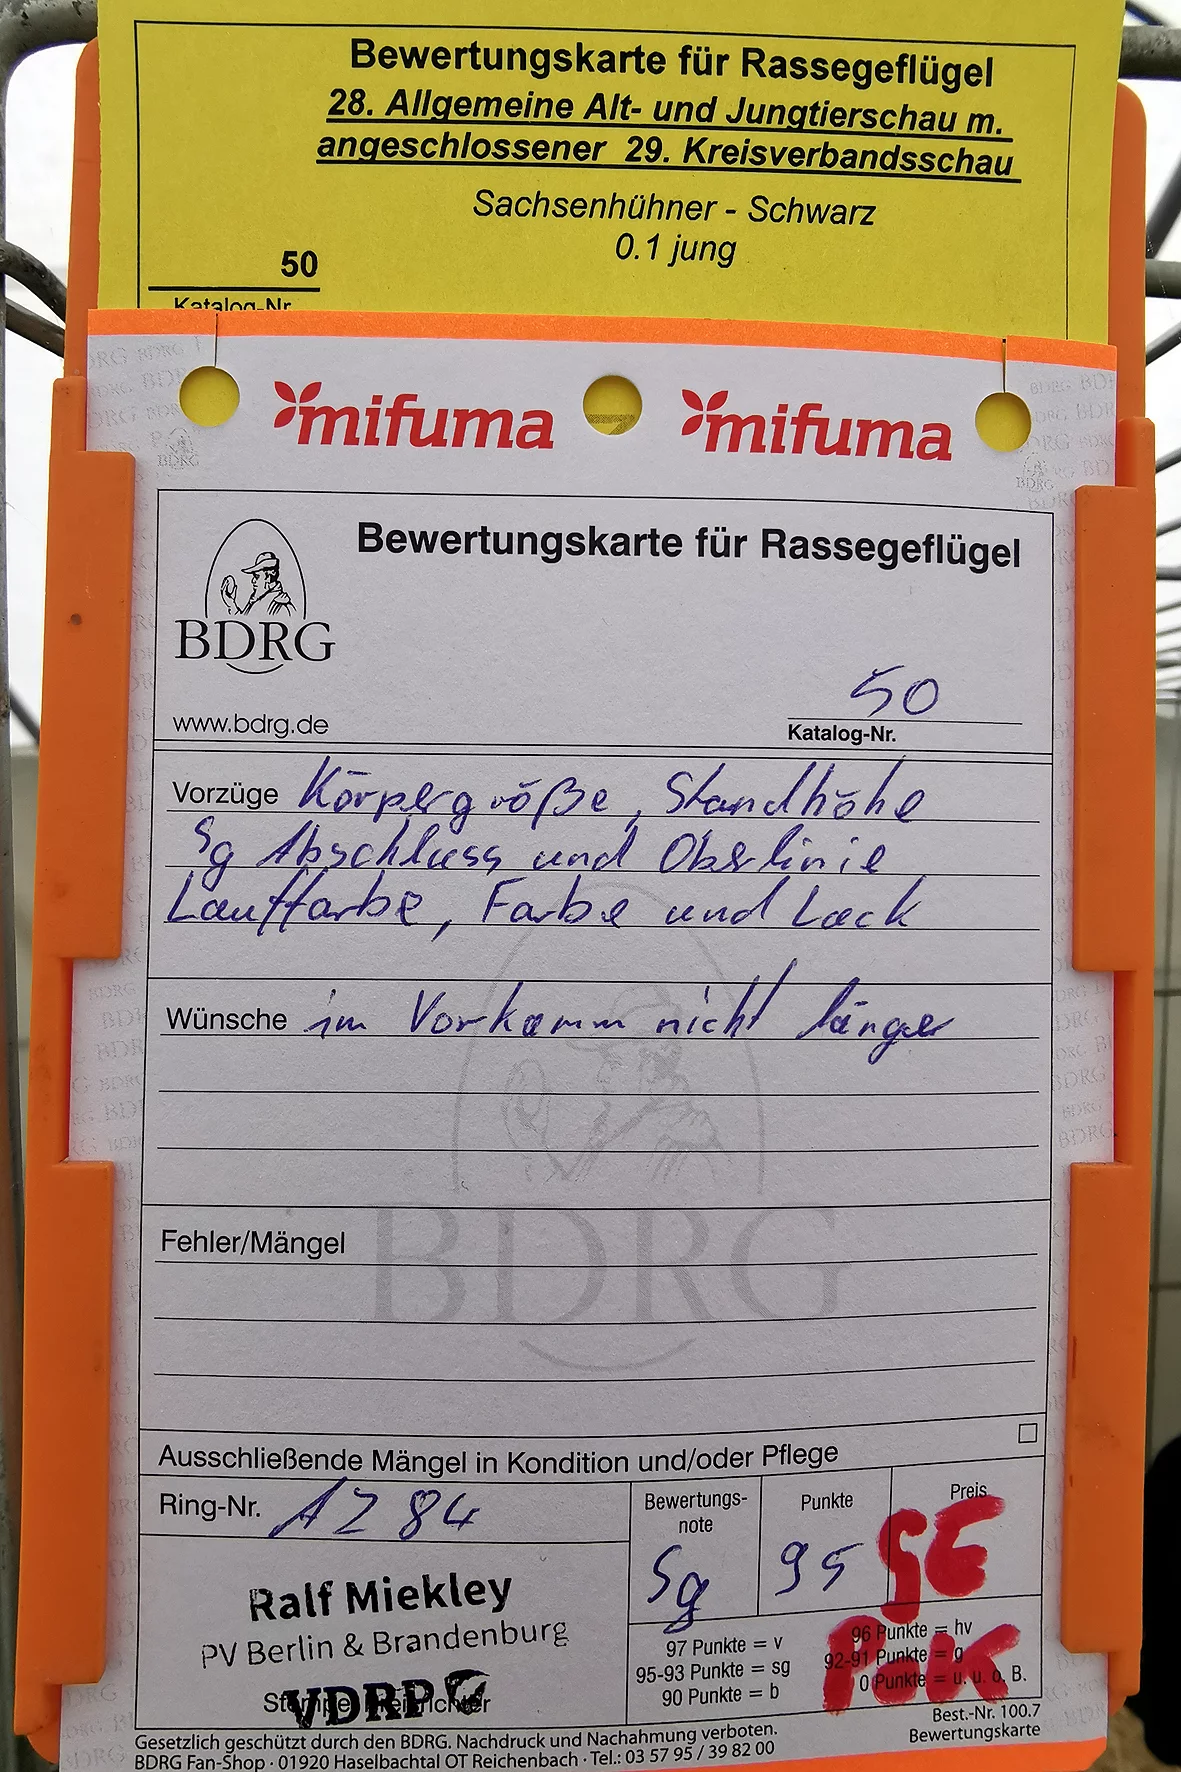 Bewertungskarte für Rassegeflügel
28. Allgemeine Alt- und Jungtierschau m.
angeschlossener 29. Kreisverbandsschau
Sachsenhühner - Schwarz
0.1 jung
50
Katalog-Nr.
mifuma mifuma
Bewertungskarte für Rassegeflügel
BDRG
www.bdrg.de
50
Katalog-Nr.
Vorzüge Körpergröße, Standhöhe
Sg Abschluss und Oberlinie
Lauffarbe, Farbe und Lack
Wünsche im Vorkamm nicht länger
BDRG
Fehler/Mängel
Ausschließende Mängel in Kondition und/oder Pflege
Ring-Nr. AZ 84
Bewertungs-
note
Sg
Punkte
95
Preis
SE
Ralf Miekley
PV Berlin & Brandenburg
VDRP
97 Punkte = v
95-93 Punkte = sg
90 Punkte = b
96 Punkte = hv
92-91 Punkte = g
0 Punkte = u. u. o. B.
Best.-Nr. 100.7
Bewertungskarte
Gesetzlich geschützt durch den BDRG. Nachdruck und Nachahmung verboten.
BDRG Fan-Shop · 01920 Haselbachtal OT Reichenbach · Tel.: 03 57 95 / 39 82 00